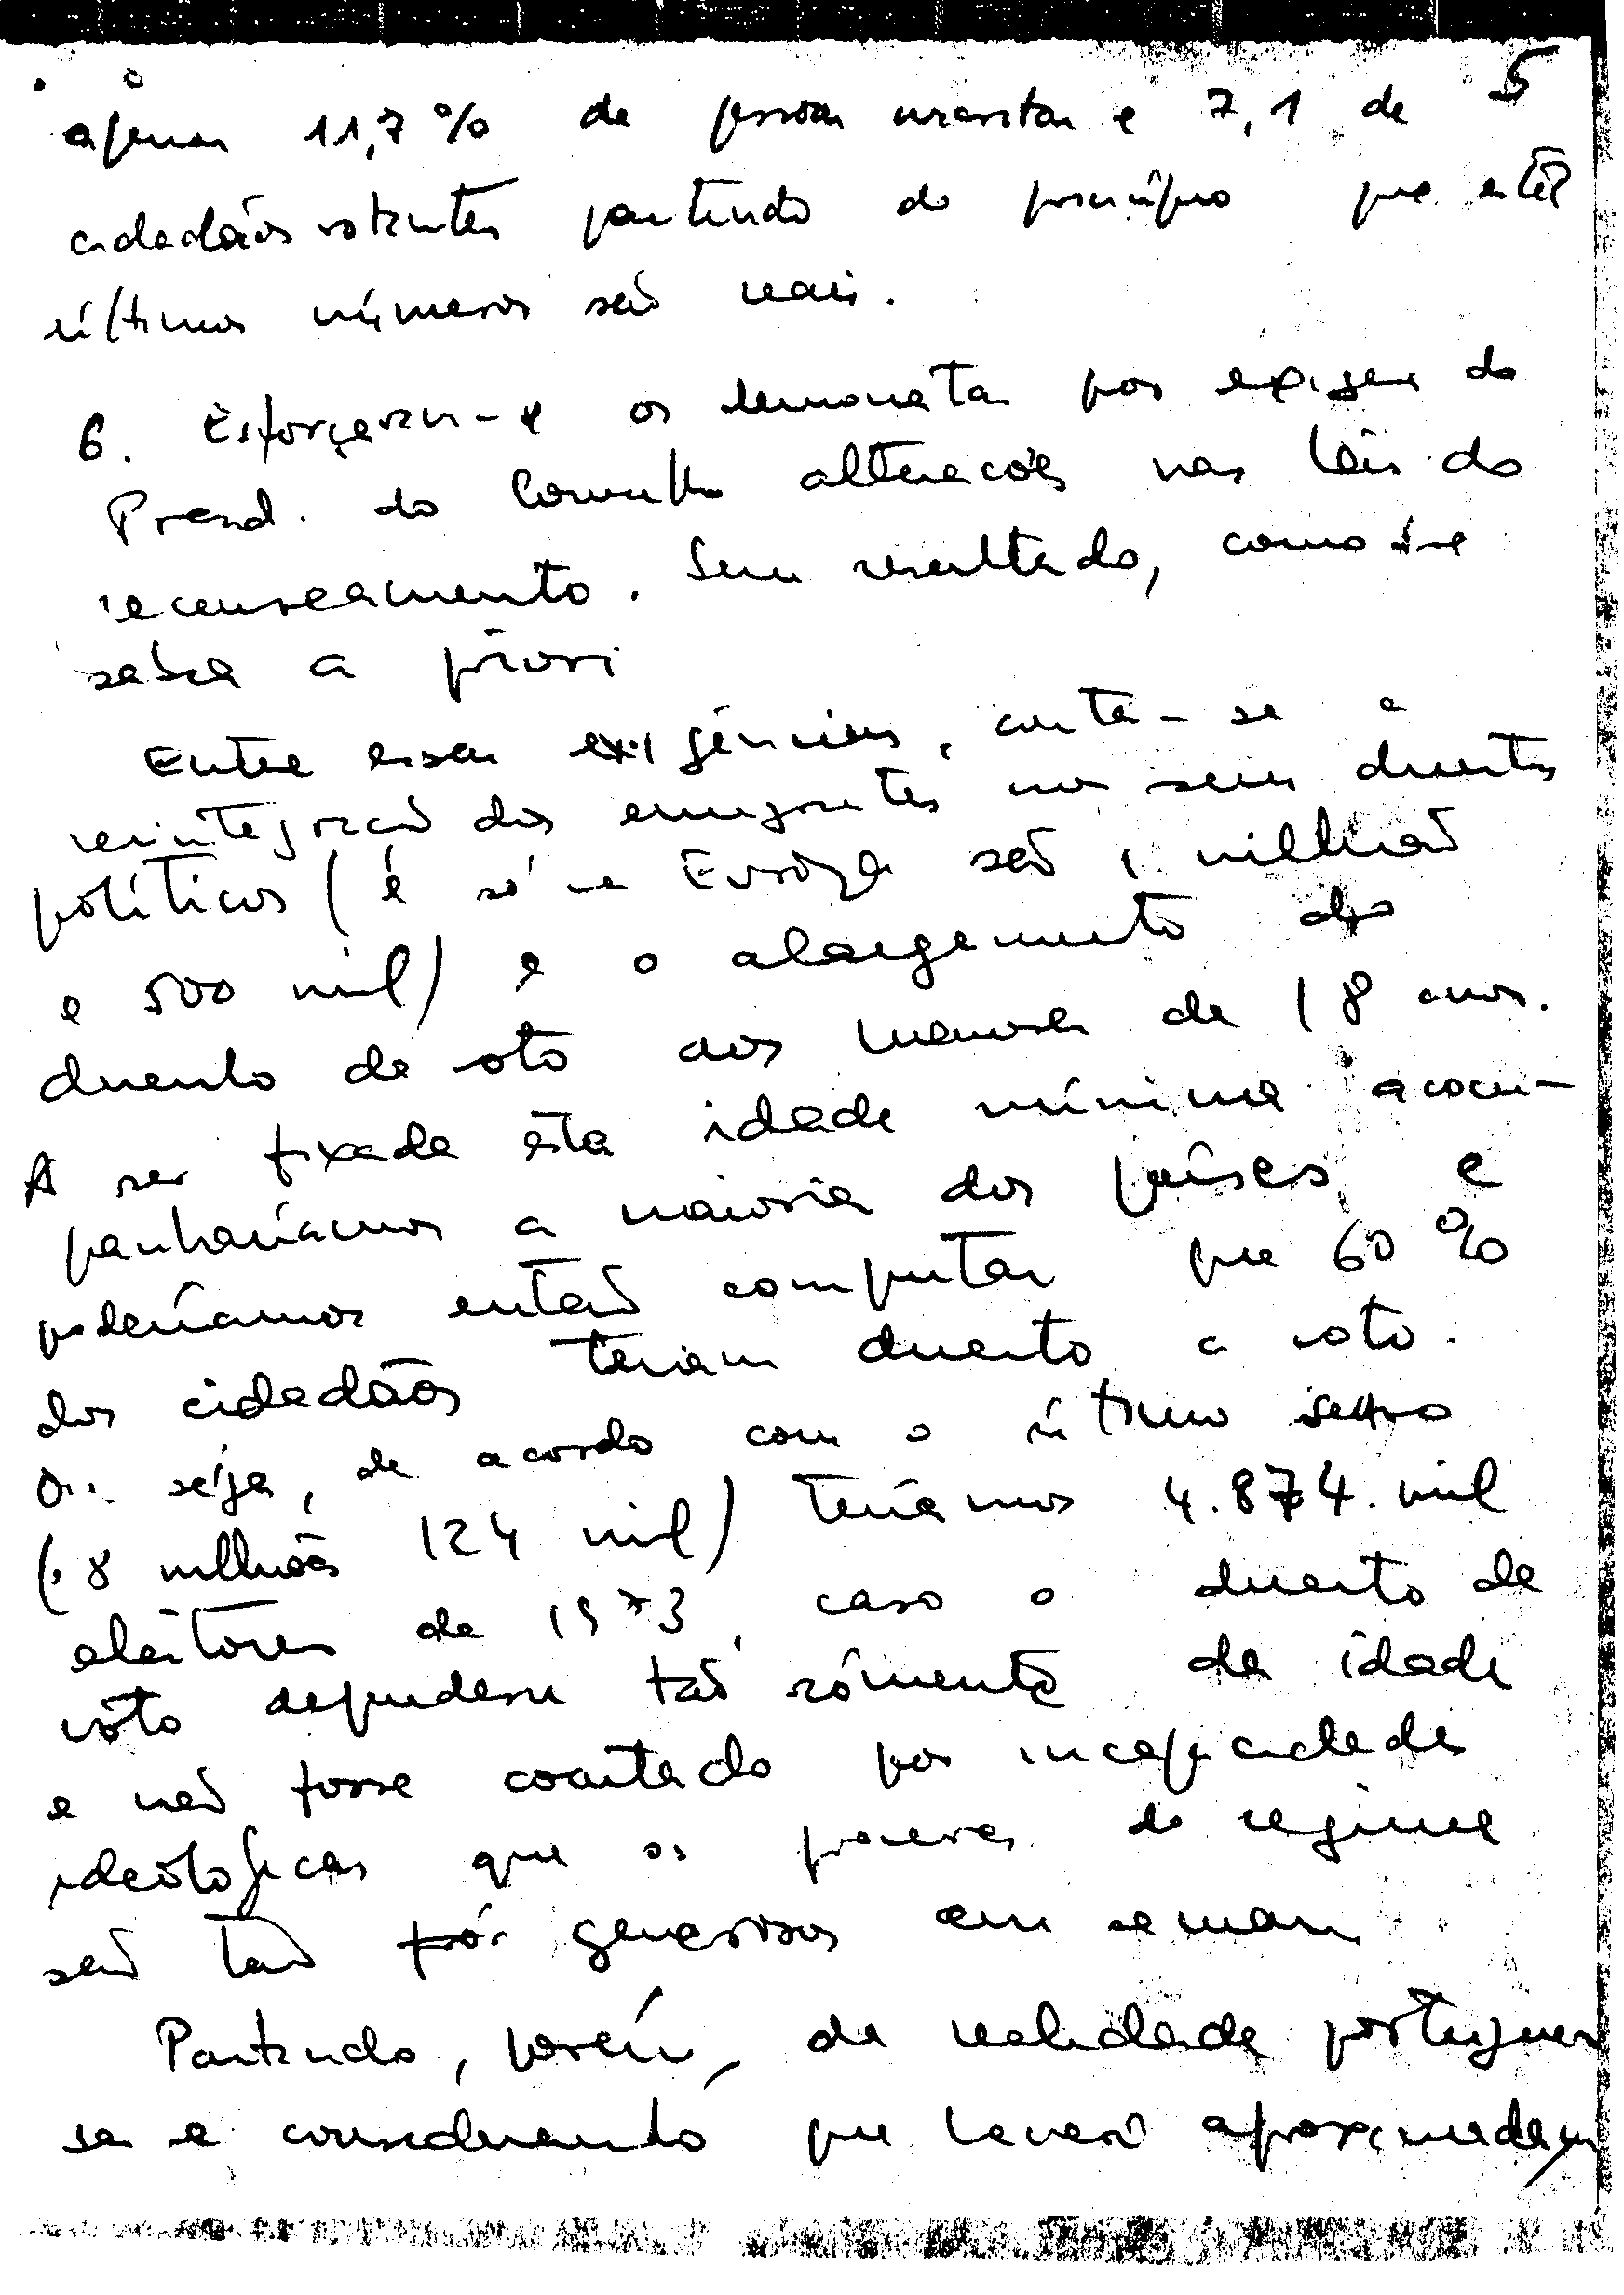 5
apenas 11,7% de pessoas inscritas e 7,1 de
cidadãos votantes partindo do princípio que estes
últimos números são reais.
6. Esforçaram-se os democratas por exigir do
Presid. do Conselho alterações nas leis do
recenseamento. Sem resultado, como se
sabia a priori
Entre essas exigências, conta-se a
reintegração dos emigrantes nos seus direitos
políticos (e só na Europa são 1 milhão
e 500 mil) e o alargamento do
direito de voto aos menores de 18 anos.
A ser fixada esta idade mínima acom-
panharíamos a maioria dos países e
poderíamos então computar que 60%
dos cidadãos teriam direito a voto.
Ou seja, de acordo com o último censo
(8 milhões 124 mil) teríamos 4.874 mil
eleitores de 1973, caso o direito de
voto dependesse tão sòmente da idade
e não fosse coartado por incapacidades
ideológicas que os próceres do regime
são tão generosos em semear
Partindo, porém, da realidade portugue
sa e considerando que haverá aproximadam